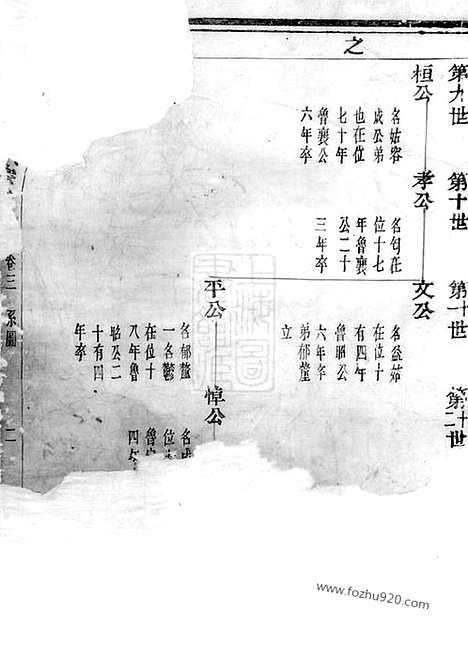 之
第九世
桓公
名姑容
成公弟
也在位
七十年
魯襄公
六年卒
第十世
孝公
名匄在
位十七
年魯襄
公二十
三年卒
第十一世
文公
名益姑
在位十
有四年
魯昭公
六年卒
弟郁釐
立
平公
名郁釐
一名鬱
在位十
八年魯
昭公二
十有四
年卒
第十二世
悼公
名成
位
魯
四年
卷三
系圖
二
www.fozhu920.com